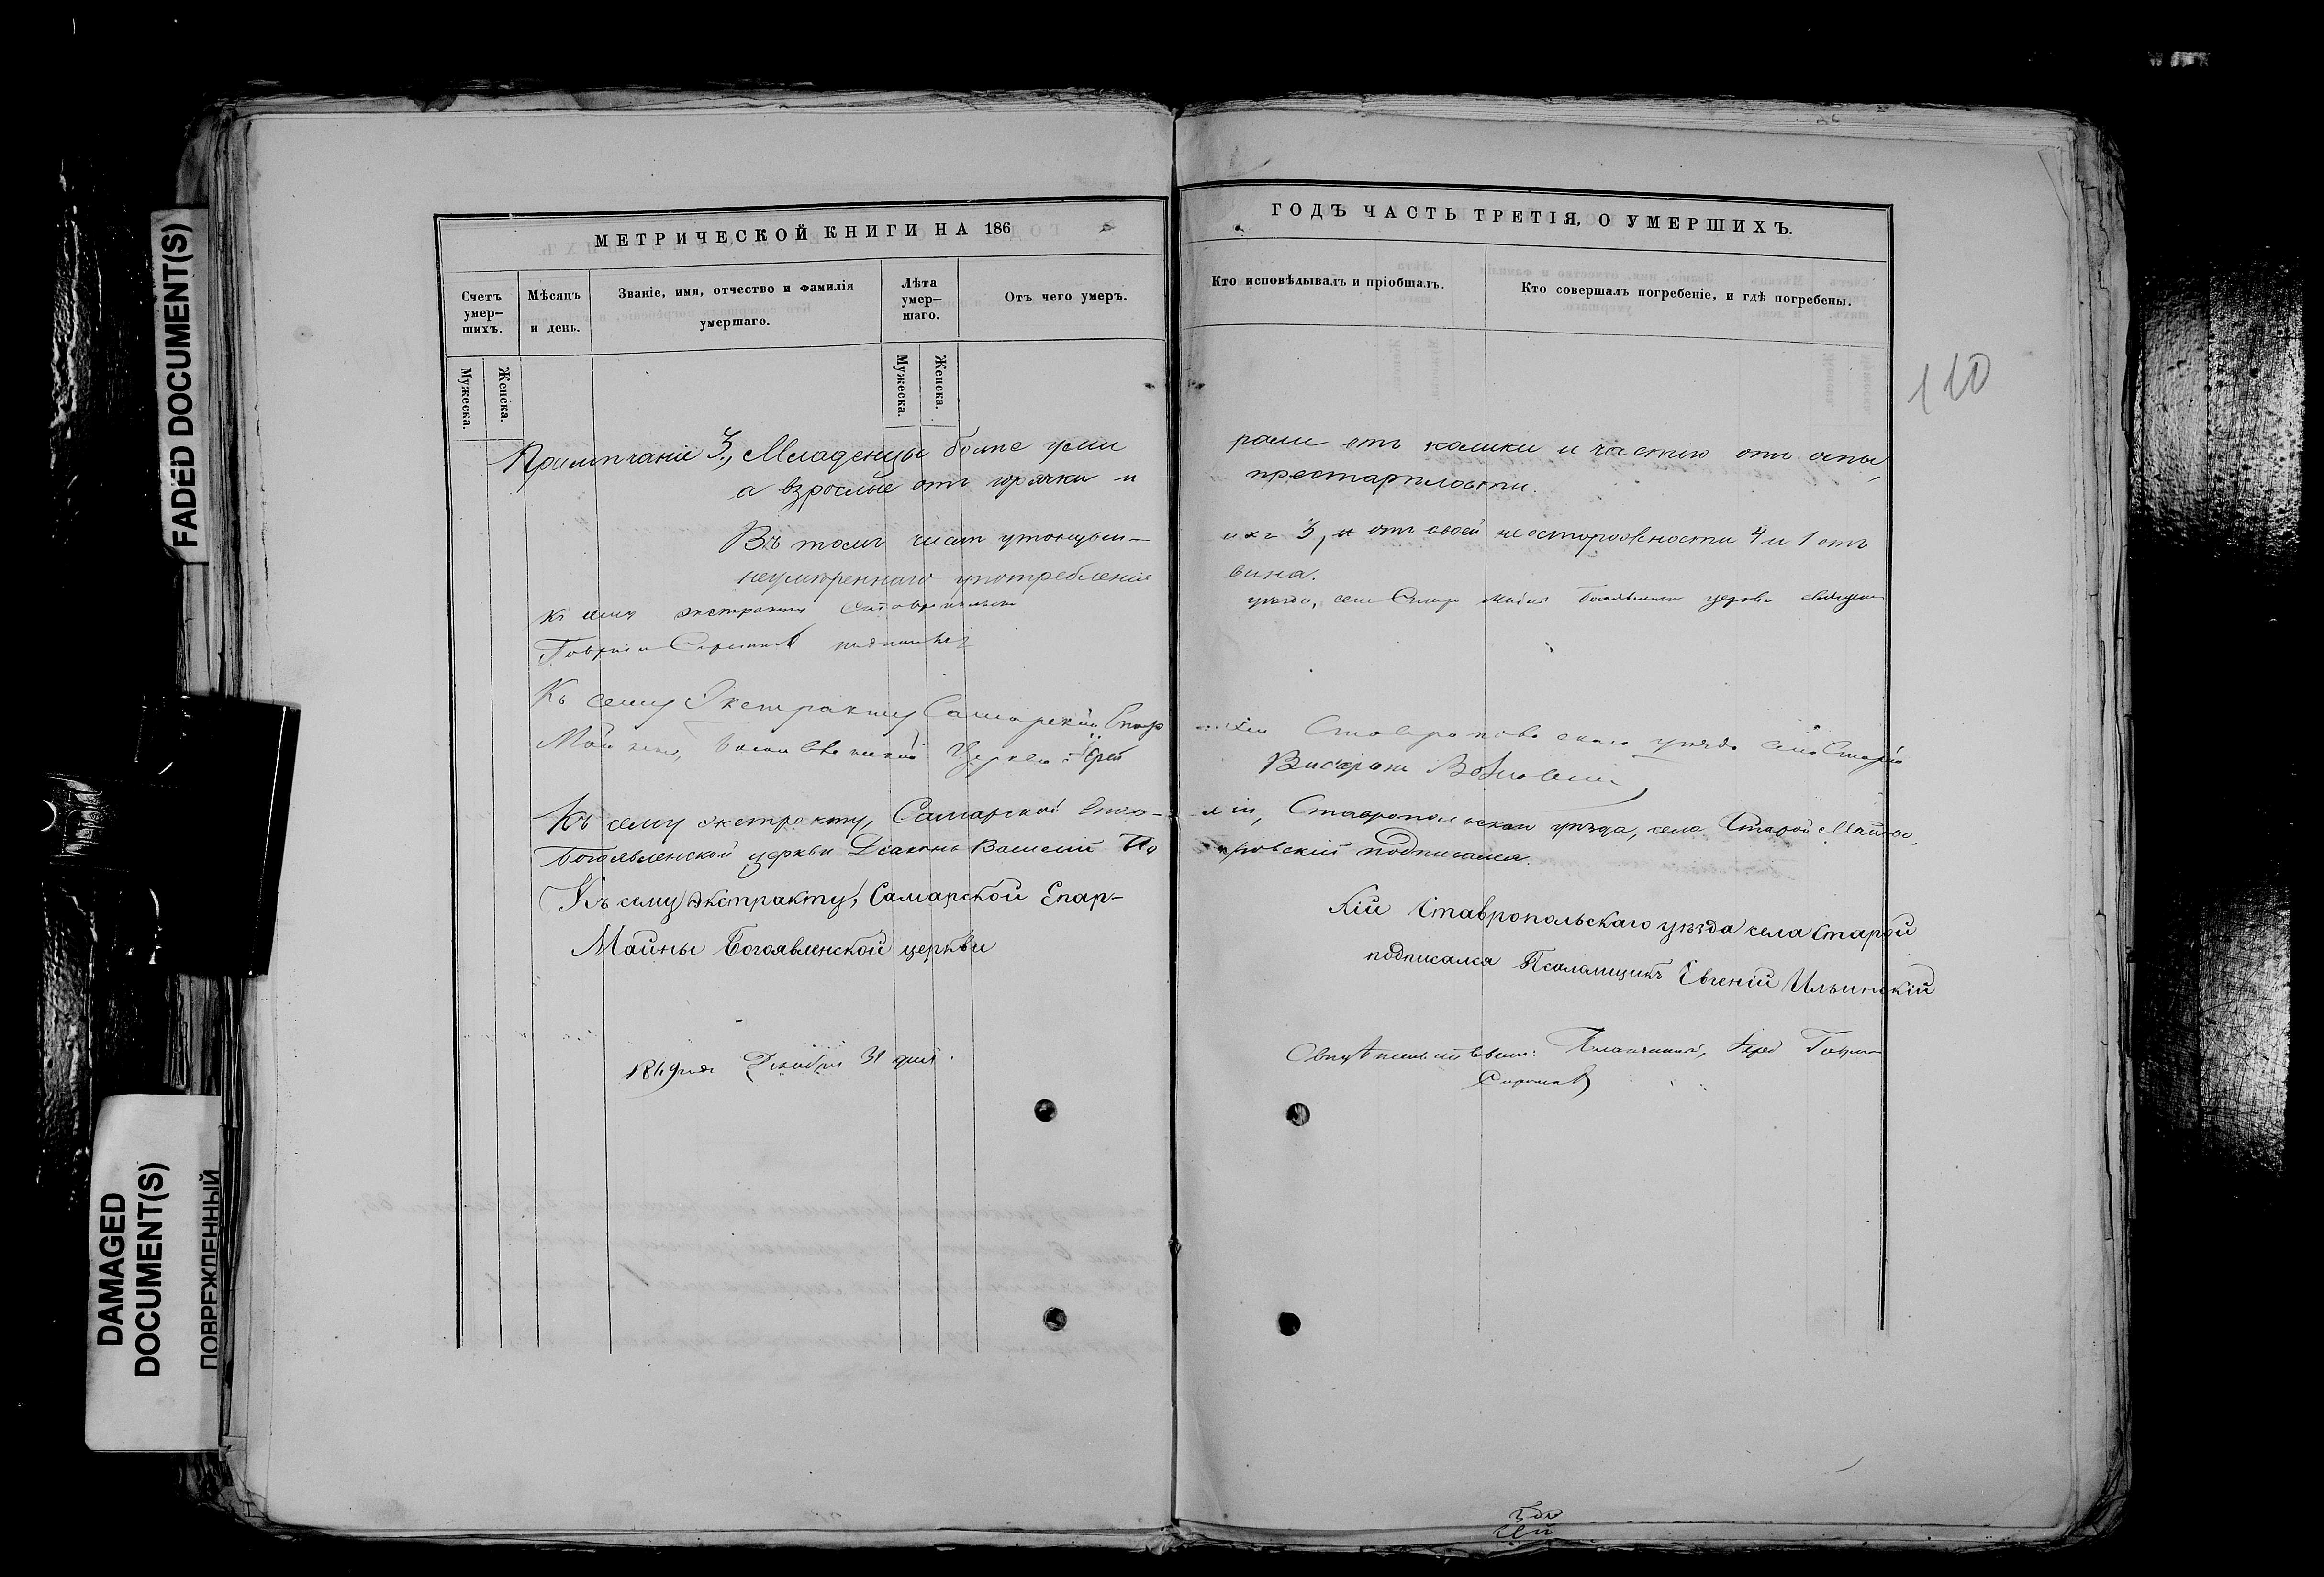 FADED DOCUMENT(S)
DAMAGED
DOCUMENT(S)
ПОВРЕЖДЕННЫЙ
МЕТРИЧЕСКОЙ КНИГИ НА 186
Счетъ умер-шихъ.
Мѣсяцъ и день.
Званіе, имя, отчество и фамилія умершаго.
Лѣта умер-шаго.
Отъ чего умеръ.
Мужеска.
Женска.
Мужеска.
Женска.
Примѣчаніе 3., Младенцы болѣе уми
а взрослые отъ горячки и
Въ томъ числѣ утонувши-
неумѣреннаго употребленія
Къ сему экстракту
подписался
Къ сему Экстракту Самарской Епар
Церкви Іерей
Къ сему экстракту, Самарской Епар-
Богоявленской церкви Діаконъ Василий По
Къ сему экстракту, Самарской Епар-
Майны Богоявленской церкви
1869 года Декабря 31 дня.
ГОДЪ ЧАСТЬ ТРЕТІЯ, О УМЕРШИХЪ.
Кто исповѣдывалъ и пріобщалъ.
Кто совершалъ погребеніе, и гдѣ погребены.
110
рали отъ колики и частію отъ оспы,
престарѣлости.
ихъ 3, и отъ своей неосторожности 4 и 1 отъ
вина.
уѣзда, села Старой Майны церкви
Ставропольскаго уѣзда села Старой
хіи, Ставропольскаго уѣзда, села Старой Майны,
кровскій подписался.
хіи Ставропольскаго уѣзда села Старой
подписался Псаломщикъ Евгеній Ильинскій
Іерей